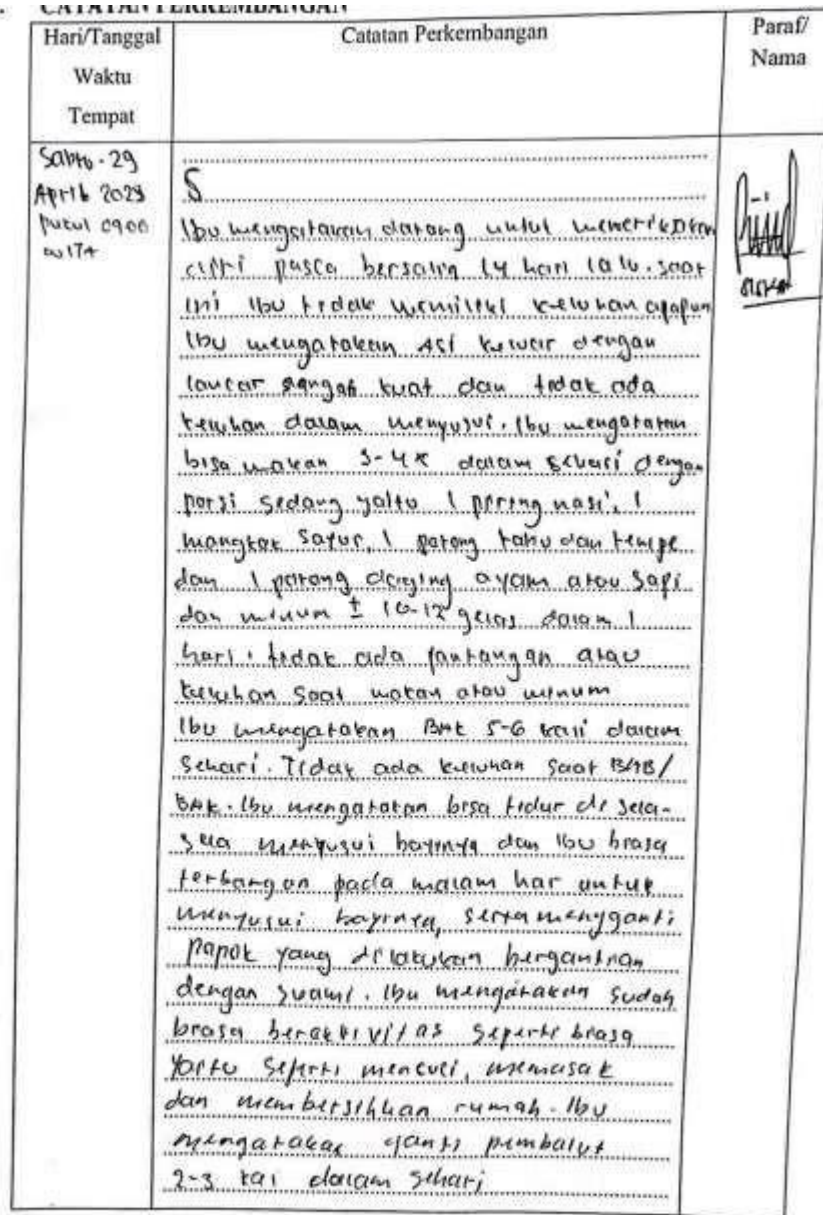 CATATAN PERKEMBANGAN
Hari/Tanggal
Waktu
Tempat
Catatan Perkembangan
Paraf/
Nama
Sabtu - 29
April
pukul 0900
S
Ibu mengatakan datang untuk
pasca bersalin 14 hari lalu. saat
ini ibu tidak memiliki keluhan apapun
Ibu mengatakan ASI keluar dengan
lancar kuat dan tidak ada
keluhan dalam menyusui. Ibu mengatakan
bisa makan 3-4x dalam sehari dengan
porsi sedang yaitu 1 piring nasi, 1
mangkok sayur, 1 potong tahu dan tempe
dan 1 potong daging ayam atau sapi
dan minum ± 10-12 gelas dalam 1
hari. tidak ada pantangan atau
keluhan saat makan atau minum
Ibu mengatakan BAK 5-6 kali dalam
sehari. Tidak ada keluhan saat BAB/
BAK. Ibu mengatakan bisa tidur di sela-
sela menyusui bayinya dan ibu
terbangun pada malam har untuk
menyusui bayinya, serta mengganti
popok yang dilakukan bergantian
dengan suami. Ibu mengatakan sudah
brasa beraktivitas seperti brasa
yaitu seperti mencuci, memasak
dan membersihkan rumah. Ibu
mengatakan ganti pembalut
2-3 kai dalam sehari